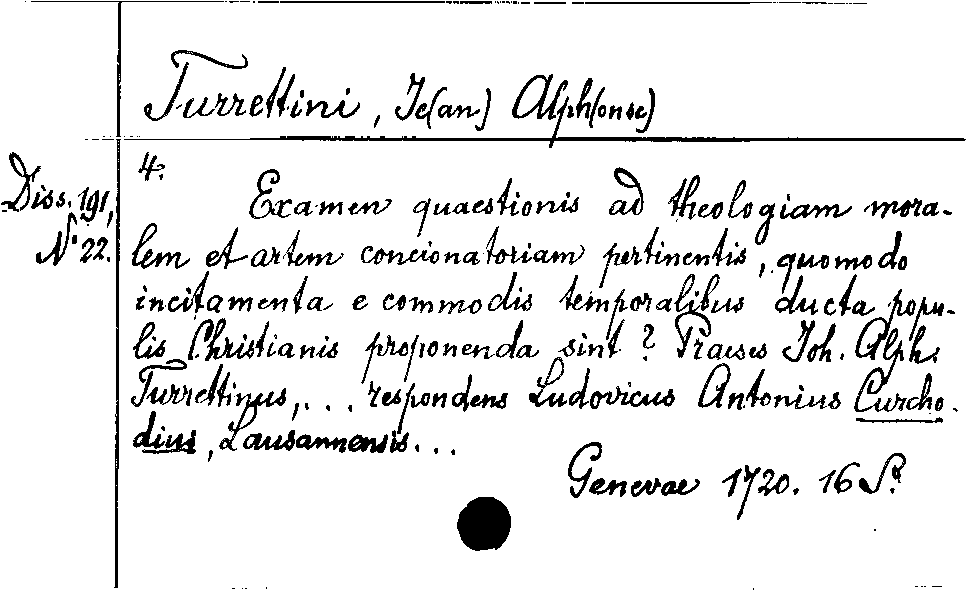 Turrettini, Je(an) Alph(onse)
4.
Diss. 191,
N° 22.
Examen quaestionis ad theologiam mora-
lem et artem concionatoriam pertinentis, quomodo
incitamenta e commodis temporalibus ducta popu-
lis Christianis proponenda sint? Praeses Joh. Alph.
Turrettinus,... respondens Ludovicus Antonius Curcho-
dius, Lausannensis...
Genevae 1720. 16 S.